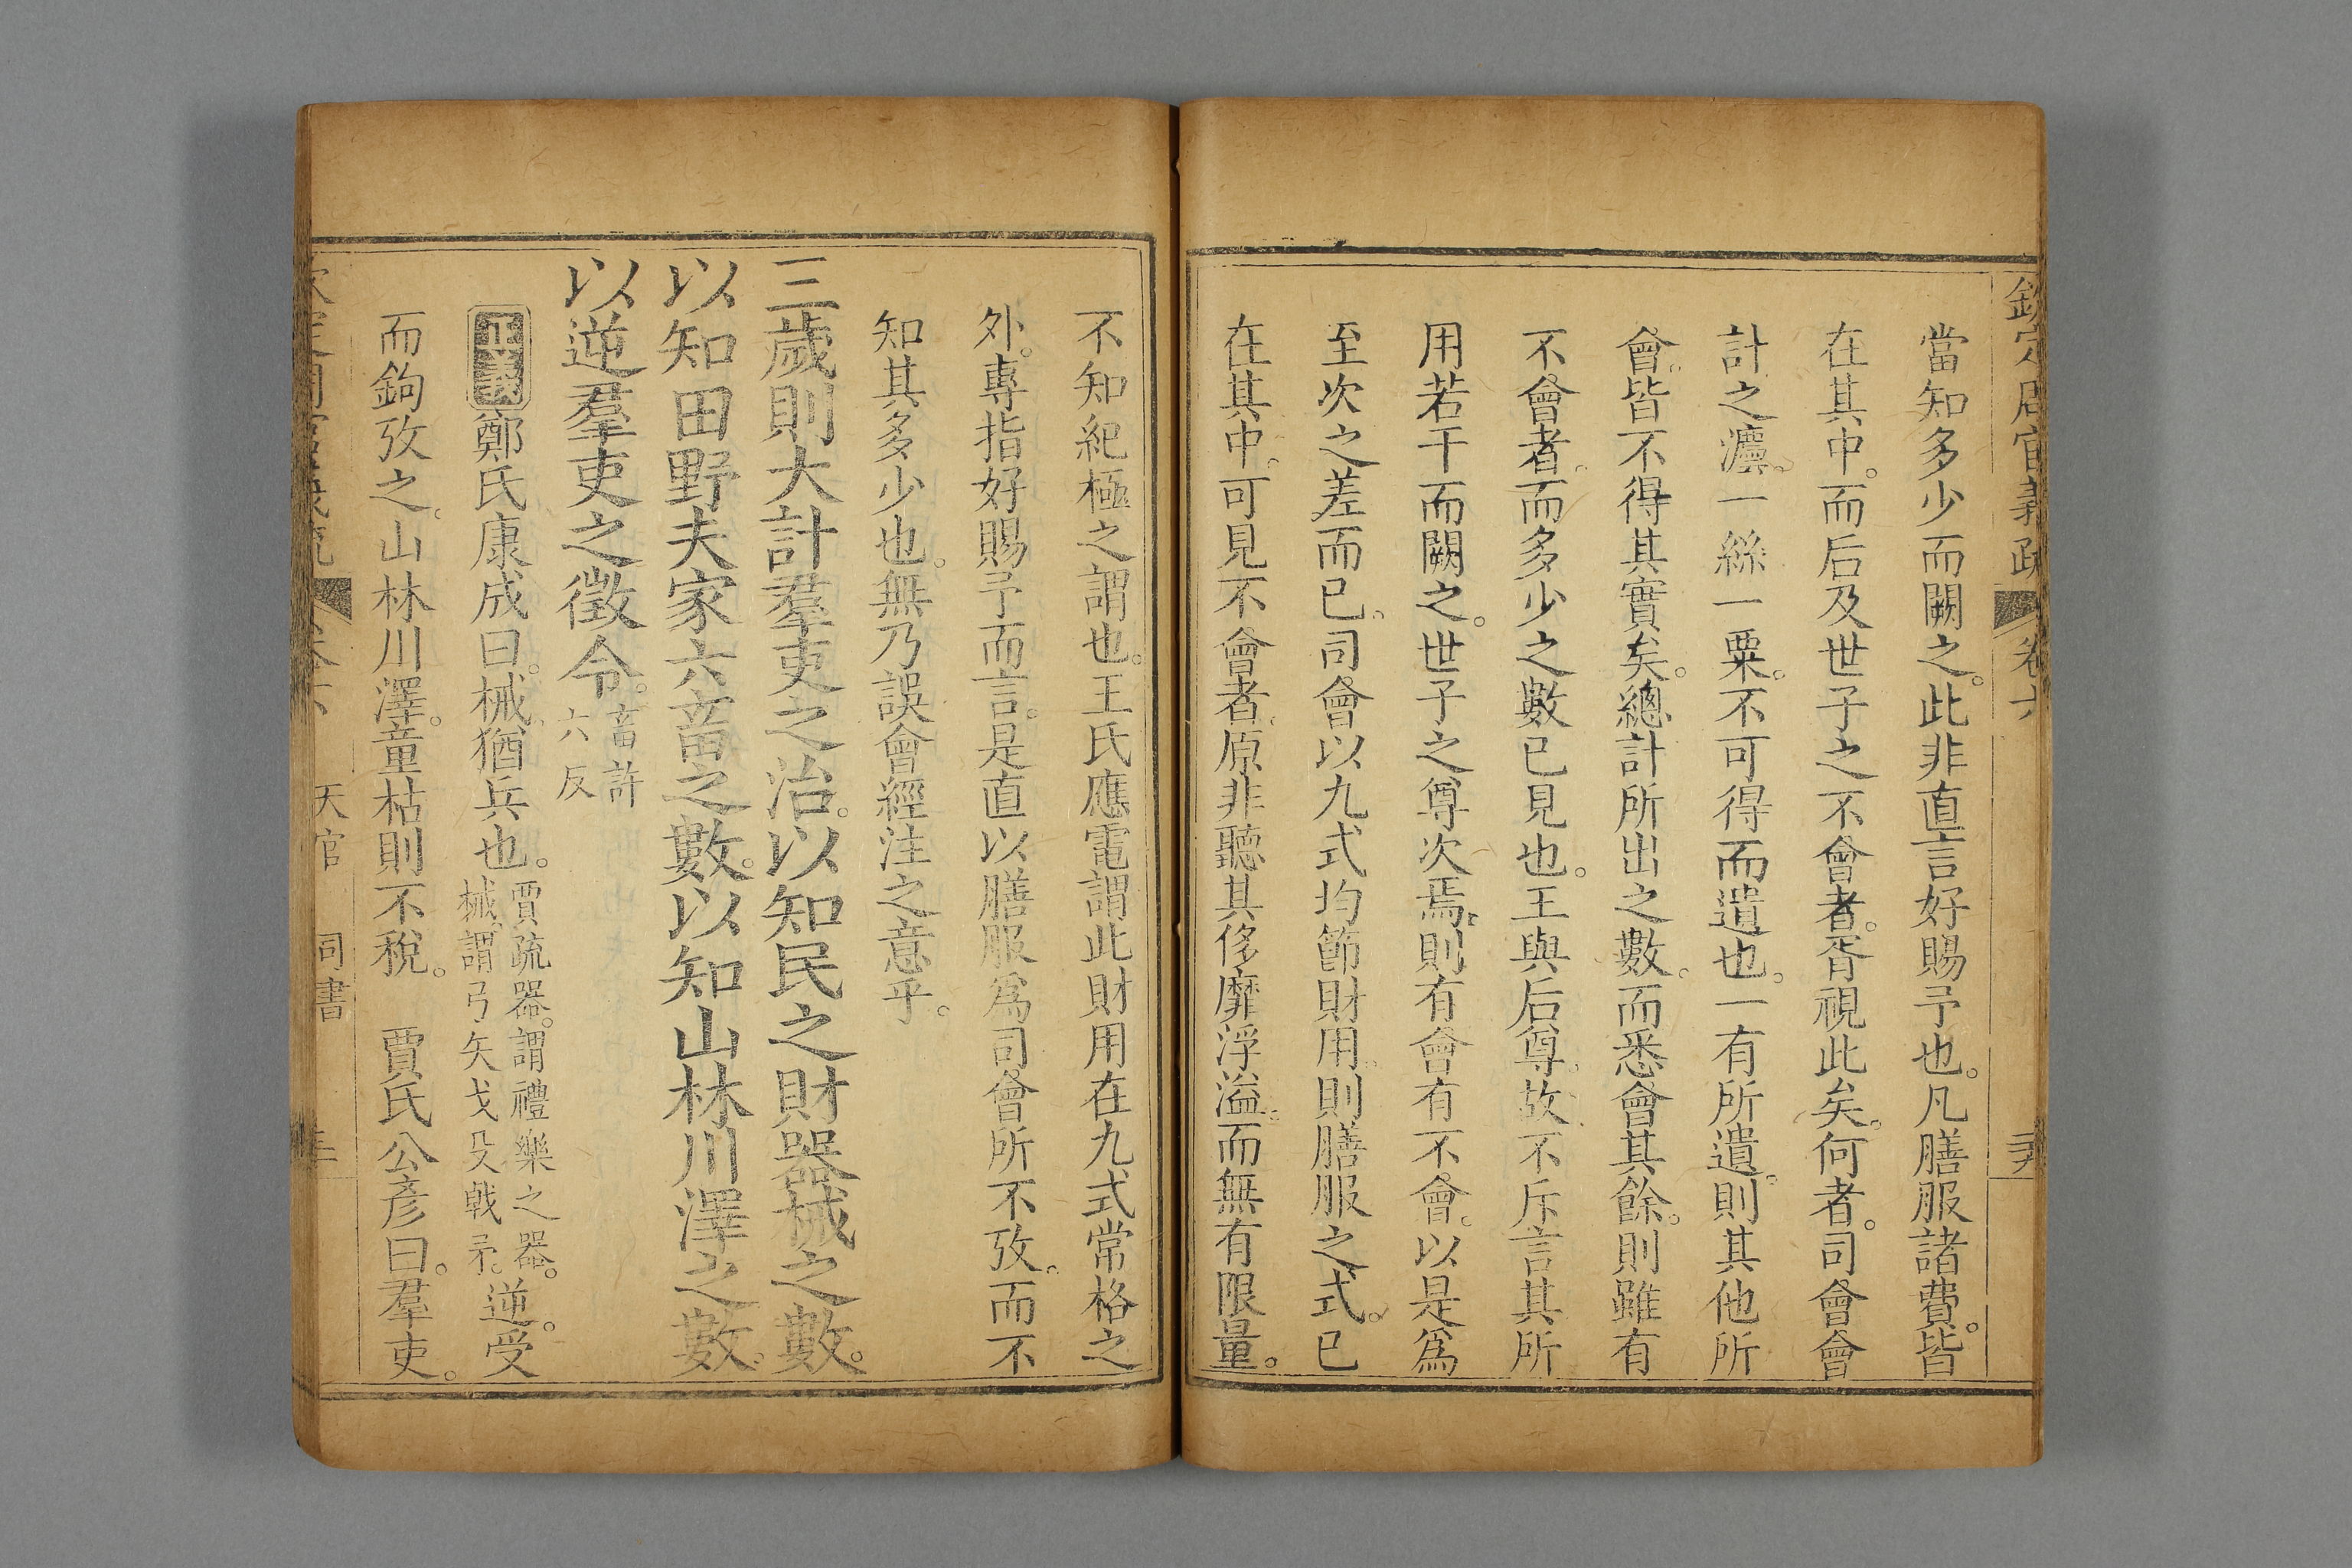 欽定周官義疏 卷六
當知多少而闕之。此非直言好賜予也。凡膳服諸費。皆
在其中。而后及世子之不會者。胥視此矣。何者。司會會
計之灋。一絲一粟。不可得而遺也。一有所遺。則其他所
會。皆不得其實矣。總計所出之數。而悉會其餘。則雖有
不會者。而多少之數已見也。王與后尊。故不斥言其所
用若干而闕之。世子之尊次焉。則有會有不會。以是爲
至次之差而已。司會以九式均節財用。則膳服之式。已
在其中。可見不會者。原非聽其侈靡浮溢。而無有限量。
不知紀極之謂也。王氏應電謂此財用在九式常格之
外。專指好賜予而言。是直以膳服爲司會所不攷。而不
知其多少也。無乃誤會經注之意乎。
三歲則大計羣吏之治。以知民之財器械之數。
以知田野夫家六畜之數。以知山林川澤之數。
以逆羣吏之徵令。畜許
六反
正義鄭氏康成曰。械猶兵也。賈疏器。謂禮樂之器。
械。謂弓矢戈殳戟矛。逆。受
而鉤攷之。山林川澤。童枯則不稅。 賈氏公彥曰。羣吏。
天官 司書